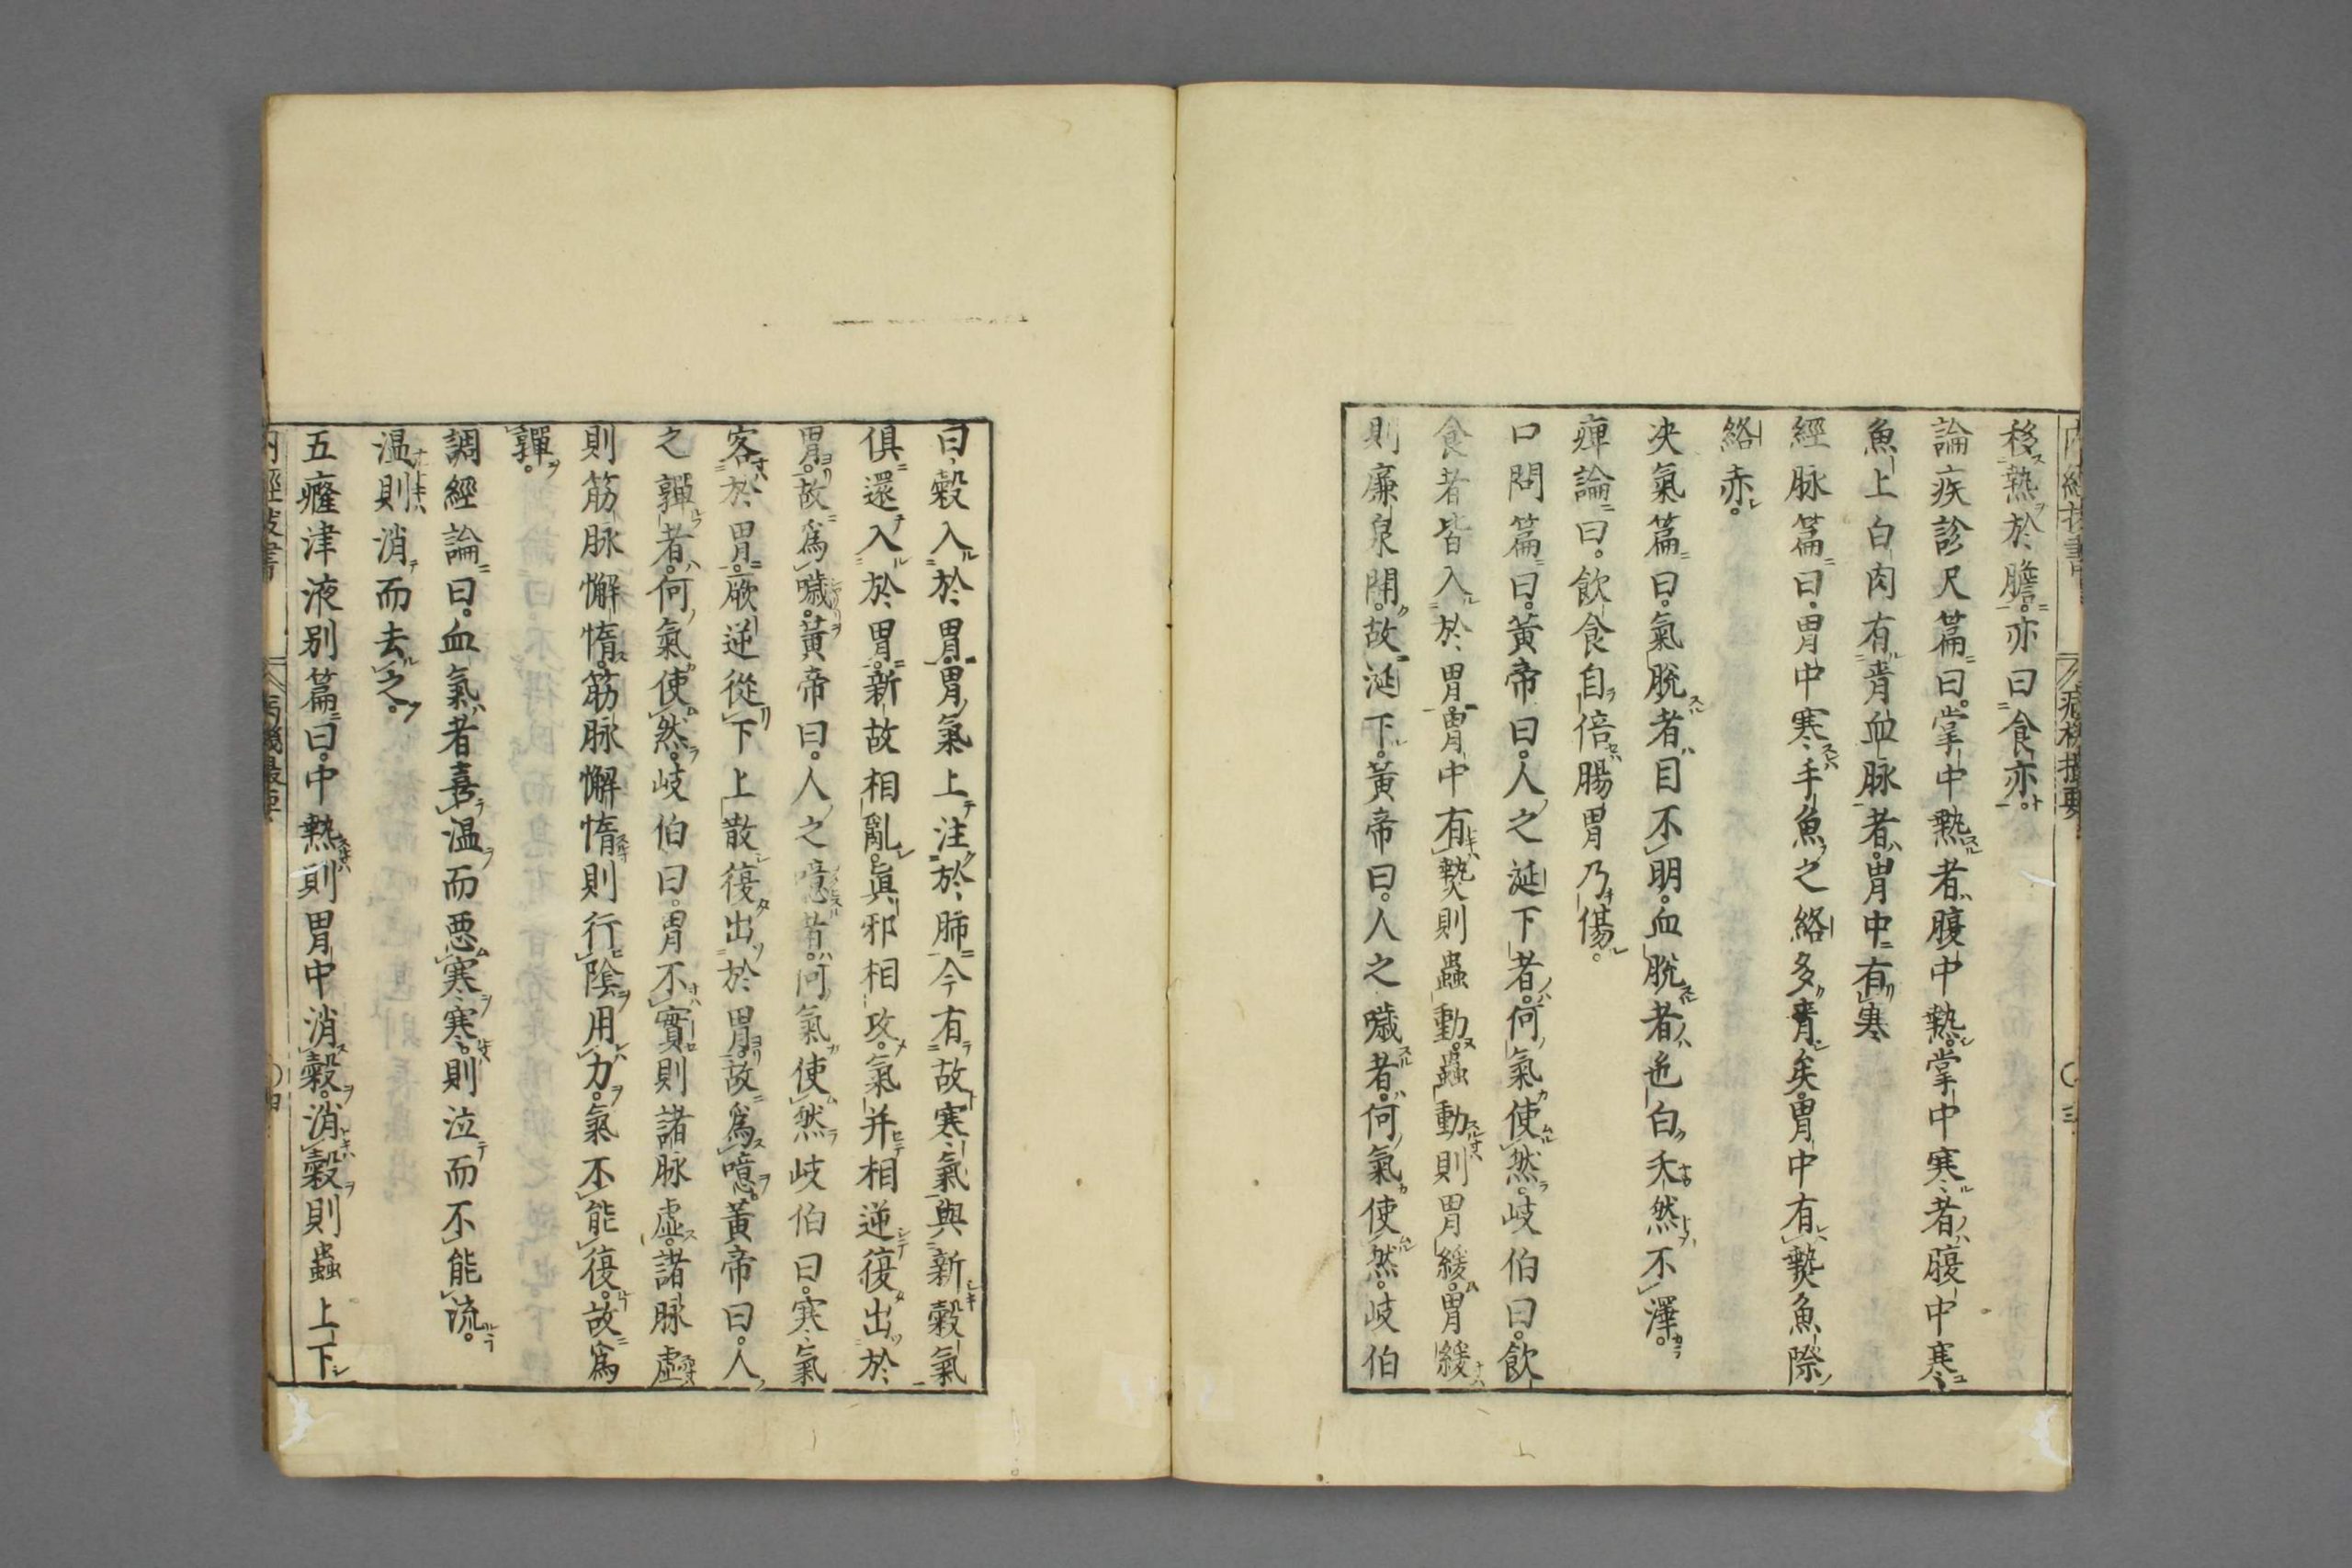 移熱於膽。亦曰食亦。
論疾診尺篇曰。掌中熱者、腹中熱。掌中寒者、腹中寒
魚上白肉有青血脉者。胃中有寒
經脉篇曰。胃中寒手魚之絡多青矣。胃中有熱魚際
絡赤。
決氣篇曰。氣脫者目不明。血脫者色白夭然不澤。
痺論曰。飲食自倍腸胃乃傷。
口問篇曰。黃帝曰。人之涎下者。何氣使然。岐伯曰。飲
食者皆入於胃。胃中有熱則蟲動。蟲動則胃緩。胃緩
則廉泉開。故涎下。黃帝曰。人之噦者。何氣使然。岐伯
曰、穀入於胃。胃氣上注於肺。今有故寒氣與新穀氣
俱還入於胃。新故相亂。眞邪相攻。氣并相逆復出於
胃。故爲噦。黃帝曰。人之噫者。何氣使然。岐伯曰。寒氣
客於胃。厥逆從下上散復出於胃。故爲噫。黃帝曰。人
之嚲者。何氣使然。岐伯曰。胃不實則諸脉虛。諸脉虛
則筋脉懈惰。筋脉懈惰則行陰用力。氣不能復。故爲
嚲。
調經論曰。血氣者喜温而惡寒。寒則泣而不能流。
温則消而去之。
五癃津液別篇曰。中熱則胃中消穀。消穀則蟲上下